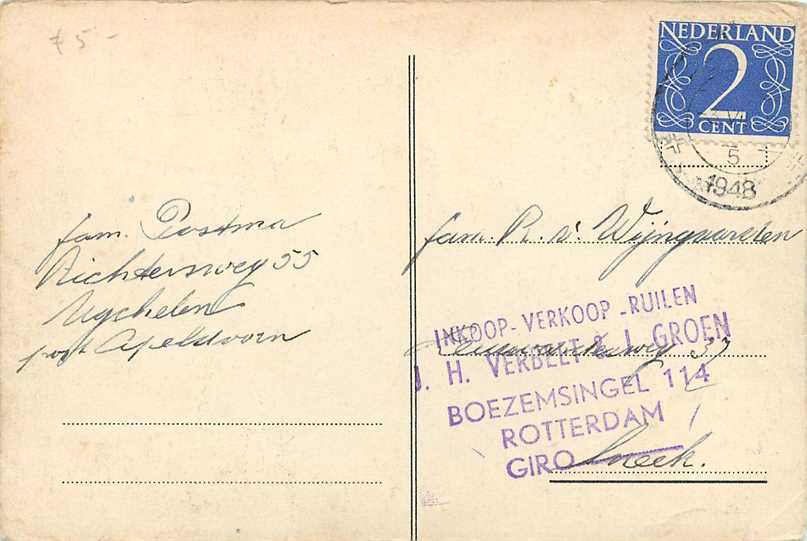 75-
NEDERLAND
2
CENT
5
1948
fam. Postma
Richtersweg 55
Ugchelen
post Apeldoorn
fam. R. v. Wijngaarden
Leeuwarderweg 37
Sneek.
INKOOP - VERKOOP - RUILEN
J. H. VERBEET & J. GROEN
BOEZEMSINGEL 114
ROTTERDAM
GIRO